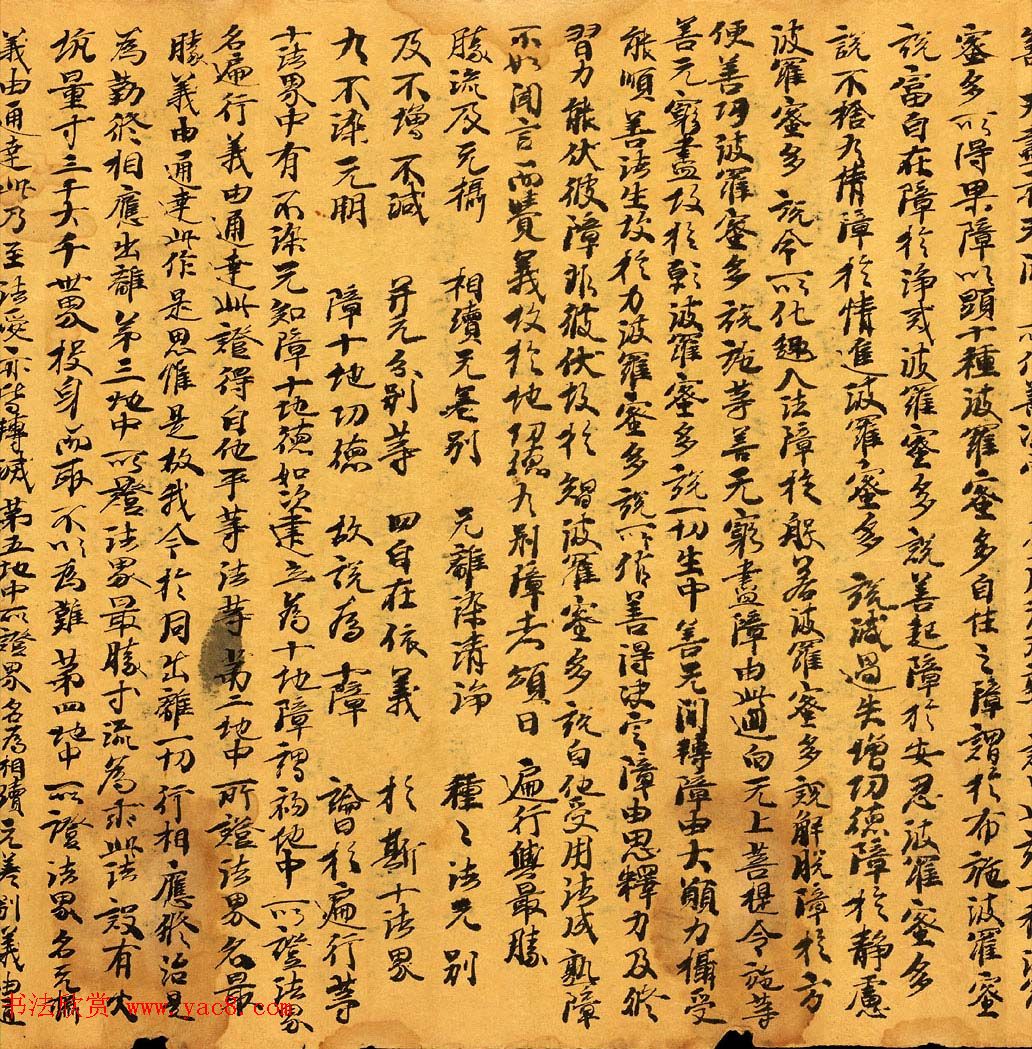 蜜多所得果障以顯十種波羅蜜多自性之障謂於布施波羅蜜
說富自在障於淨戒波羅蜜多說善趣障於安忍波羅蜜多
說不捨有情障於情進波羅蜜多 說減過失增功德障於靜慮
波羅蜜多說令所化趣入法障於般若波羅蜜多說解脫障於方
便善巧波羅蜜多說施等善无窮盡障由此迴向无上菩提令施等
善无窮盡故於願波羅蜜多說一切生中善无間轉障由大願力攝受
能順善法生故於力波羅蜜多說所作善得決定障由思擇力及修
習力能伏彼障非彼伏故於智波羅蜜多說自他受用法成熟障
不如聞言而覺義故於地功德有別障者頌曰 遍行與最勝
勝流及无攝 相續无差別 无雜染清淨 種種法无別
及不增不減 并无分別等 四自在依義 於斯十法界
有不染无明 障十地功德 故說為十障 論曰於遍行等
十法界中有不染无知障十地德如次建立為十地障謂初地中所證法界
名遍行義由通達此證得自他平等法等 第二地中所證法界名最
勝義由通達此作是思惟是故我今於同出離一切行相應修治是
為勤修相應出離 第三地中所證法界最勝等流為求此法設有火
坑量等三千大千世界投身而取不以為難 第四地中所證法界名无攝
義由通達此乃至法愛亦皆轉滅第五地中所證界名為相續无差別義由通
书法欣赏 www.yac8.com